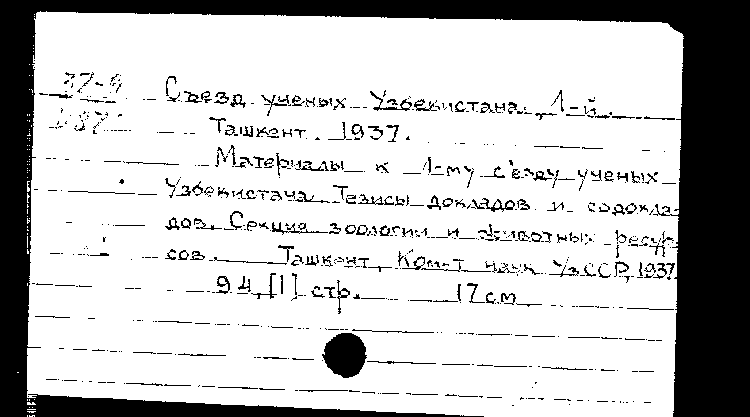 37-4 Съезд ученых Узбекистана, 1-й.
Ташкент. 1937.
Материалы к 1-му с'езду ученых
Узбекистана. Тезисы докладов и содокла-
дов. Секция зоологии и животных ресур-
сов. Ташкент, Ком-т наук УзССР, 1937.
94, [1] стр. 17 см